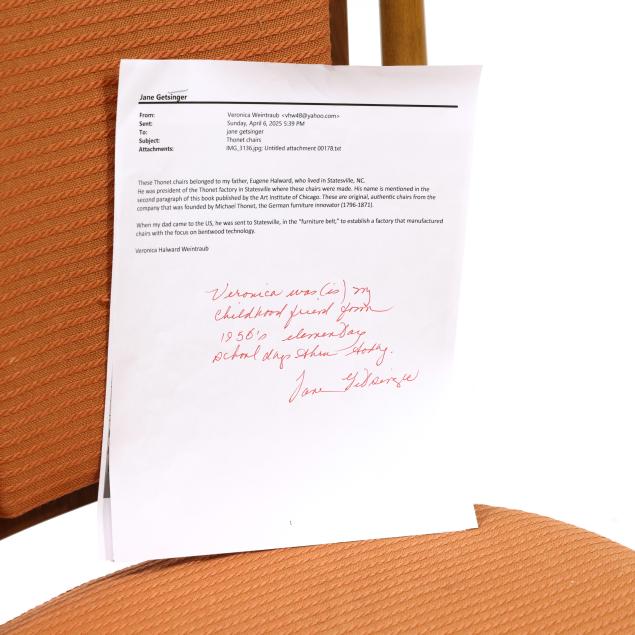 Jane Getsinger
From: Veronica Weintraub <vhw48@yahoo.com>
Sent: Sunday, April 6, 2025 5:39 PM
To: jane getsinger
Subject: Thonet chairs
Attachments: IMG_3136.jpg; Untitled attachment 00178.txt
These Thonet chairs belonged to my father, Eugene Halward, who lived in Statesville, NC.
He was president of the Thonet factory in Statesville where these chairs were made. His name is mentioned in the
second paragraph of this book published by the Art Institute of Chicago. These are original, authentic chairs from the
company that was founded by Michael Thonet, the German furniture innovator (1796-1871).
When my dad came to the US, he was sent to Statesville, in the "furniture belt," to establish a factory that manufactured
chairs with the focus on bentwood technology.
Veronica Halward Weintraub
Veronica was (is) my
childhood friend from
1950's elementary
school days thru today.
Jane Getsinger
1